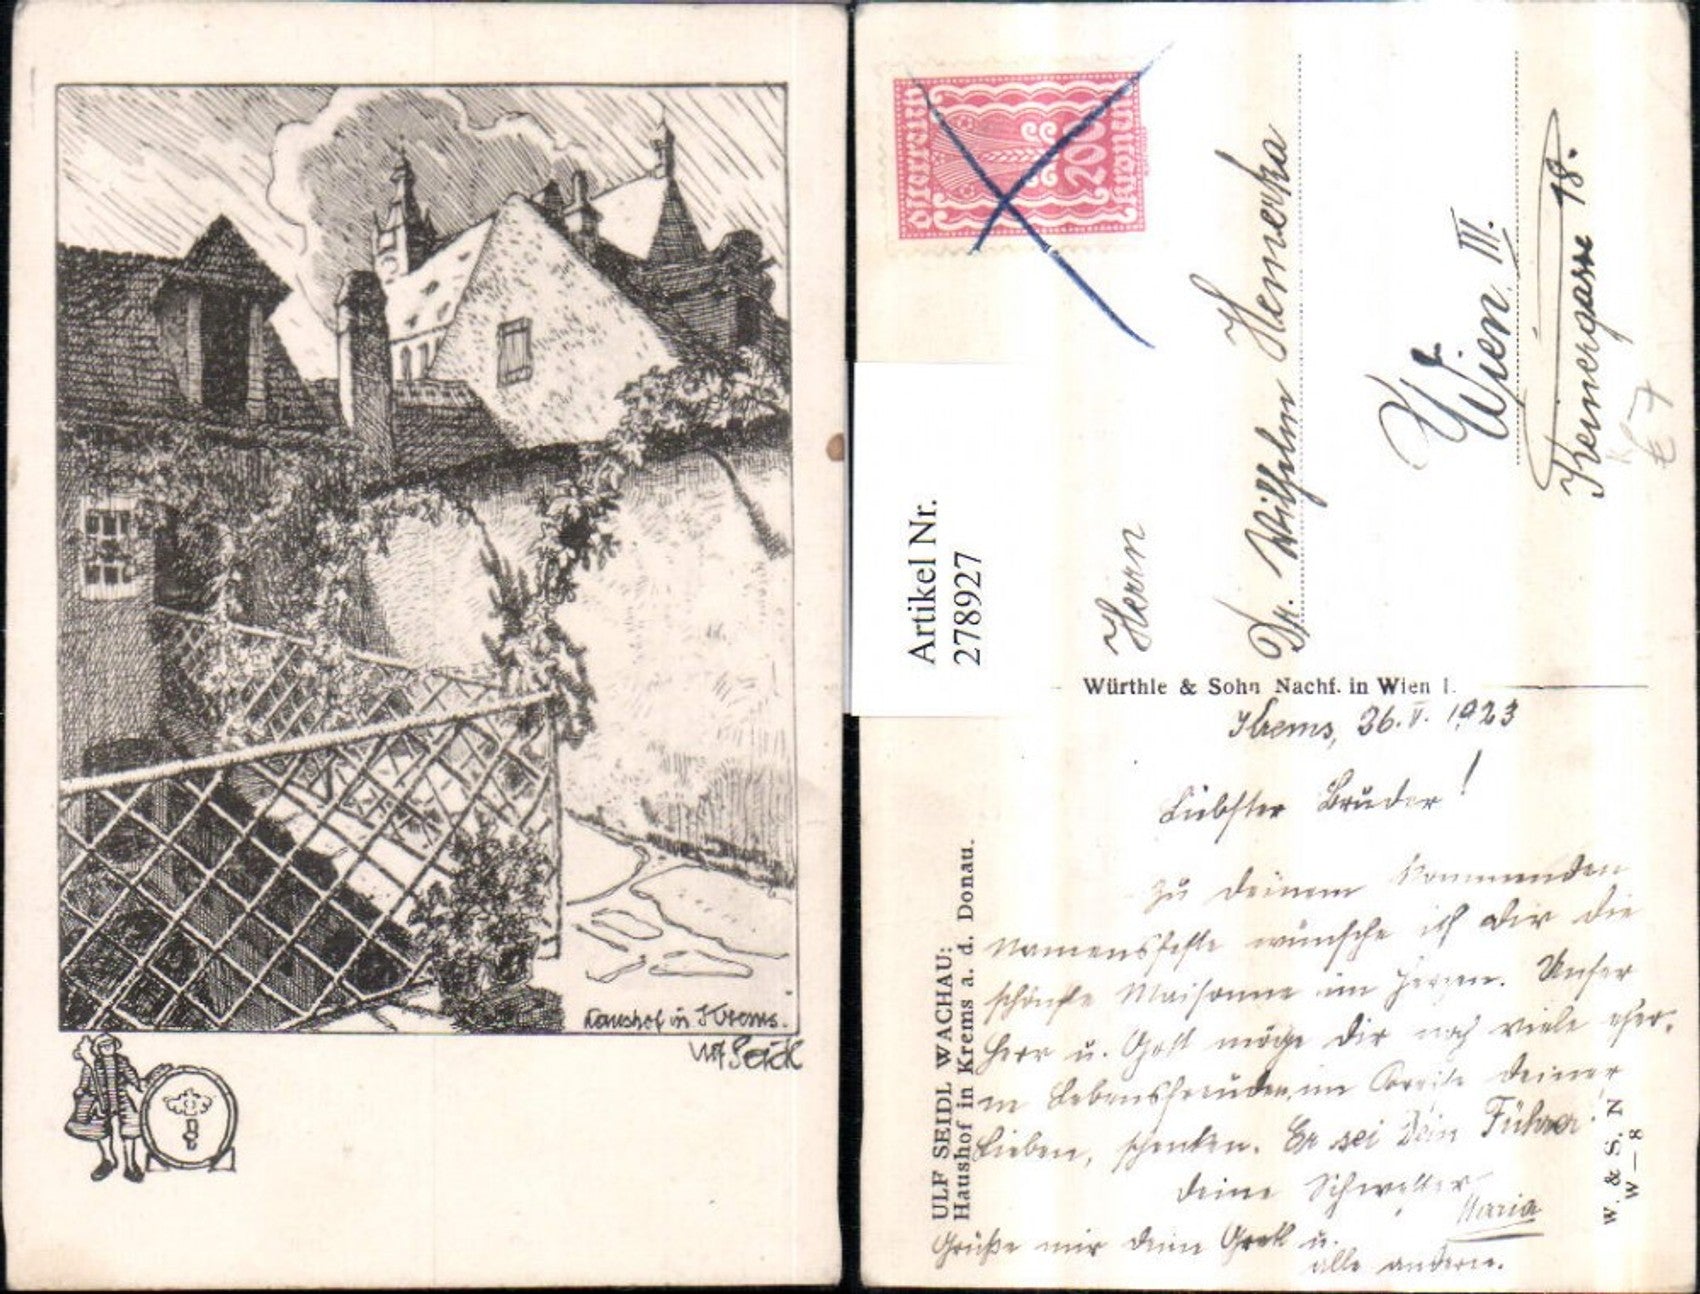 Haushof in Krems.
Ulf Seidl
Österreich
200
Kronen
Artikel Nr.
278927
Herrn
Dr. Wilhelm Hemerka
Wien III.
18.
€ 7
Würthle & Sohn Nachf. in Wien I.
ULF SEIDL WACHAU:
Haushof in Krems a. d. Donau.
W. & S. N
W—8
Krems, 26.V. 1923
Liebster Bruder!
Zu deinem kommenden
Namensfeste wünsche ich dir die
schönste im Herzen. Unser
Herr u. Gott möge dir noch viele
Lebensfreuden, im Kreise deiner
Lieben, schenken. Er sei Dein Führer!
Deine Schwester
Maria
Grüße mir deine Gretl u.
alle andern.